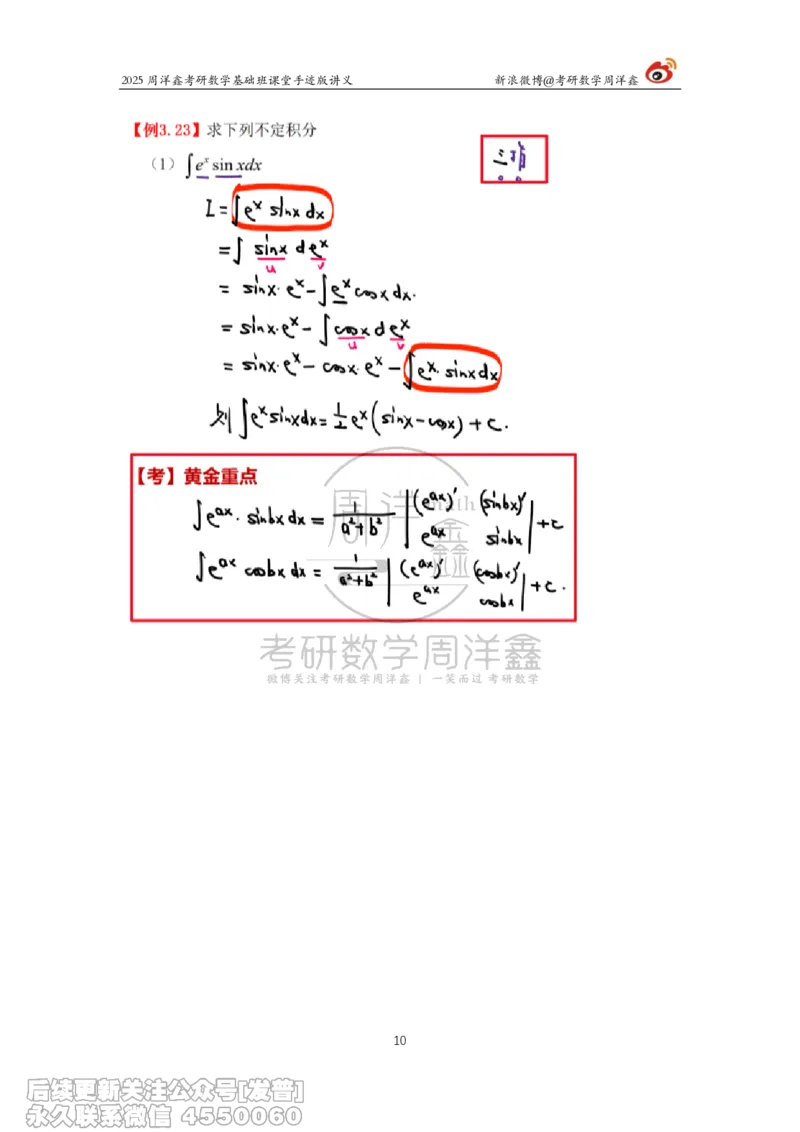 2025 周洋鑫考研数学基础班课堂手迹版讲义 新浪微博@考研数学周洋鑫
【例3.23】求下列不定积分
(1) ∫eˣ sin xdx
三指
I=∫eˣ sinx dx
=∫ sinx d eˣ
u v
= sinx·eˣ-∫eˣcosxdx.
= sinx·eˣ-∫cosxdeˣ
u v
= sinx·eˣ-cosx·eˣ-∫eˣ·sinxdx
则∫eˣsinxdx=½eˣ(sinx-cosx)+C.
【考】黄金重点
∫e^{ax}·sinbxdx = 1/(a²+b²) |(e^{ax})′ (sinbx)′; e^{ax} sinbx|+C
∫e^{ax} cosbxdx = 1/(a²+b²) |(e^{ax})′ (cosbx)′; e^{ax} cosbx|+C.
周洋鑫
math
考研数学周洋鑫
微博关注考研数学周洋鑫 | 一笑而过 考研数学
10
后续更新关注公众号[发普]
永久联系微信 4550060